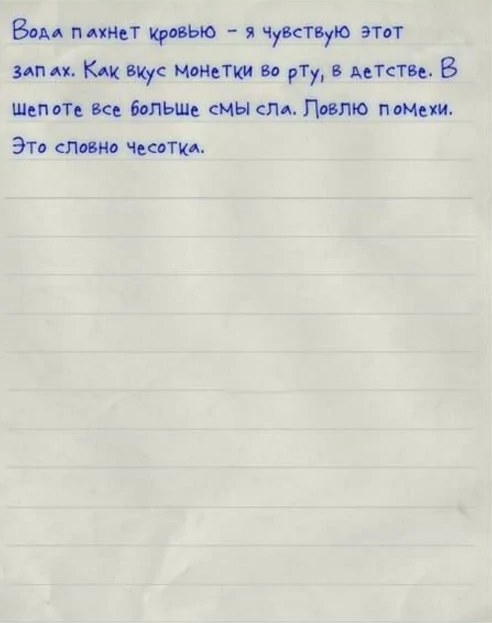 Вода пахнет кровью – я чувствую этот
запах. Как вкус монетки во рту, в детстве. В
шепоте все больше смысла. Ловлю помехи.
Это словно чесотка.